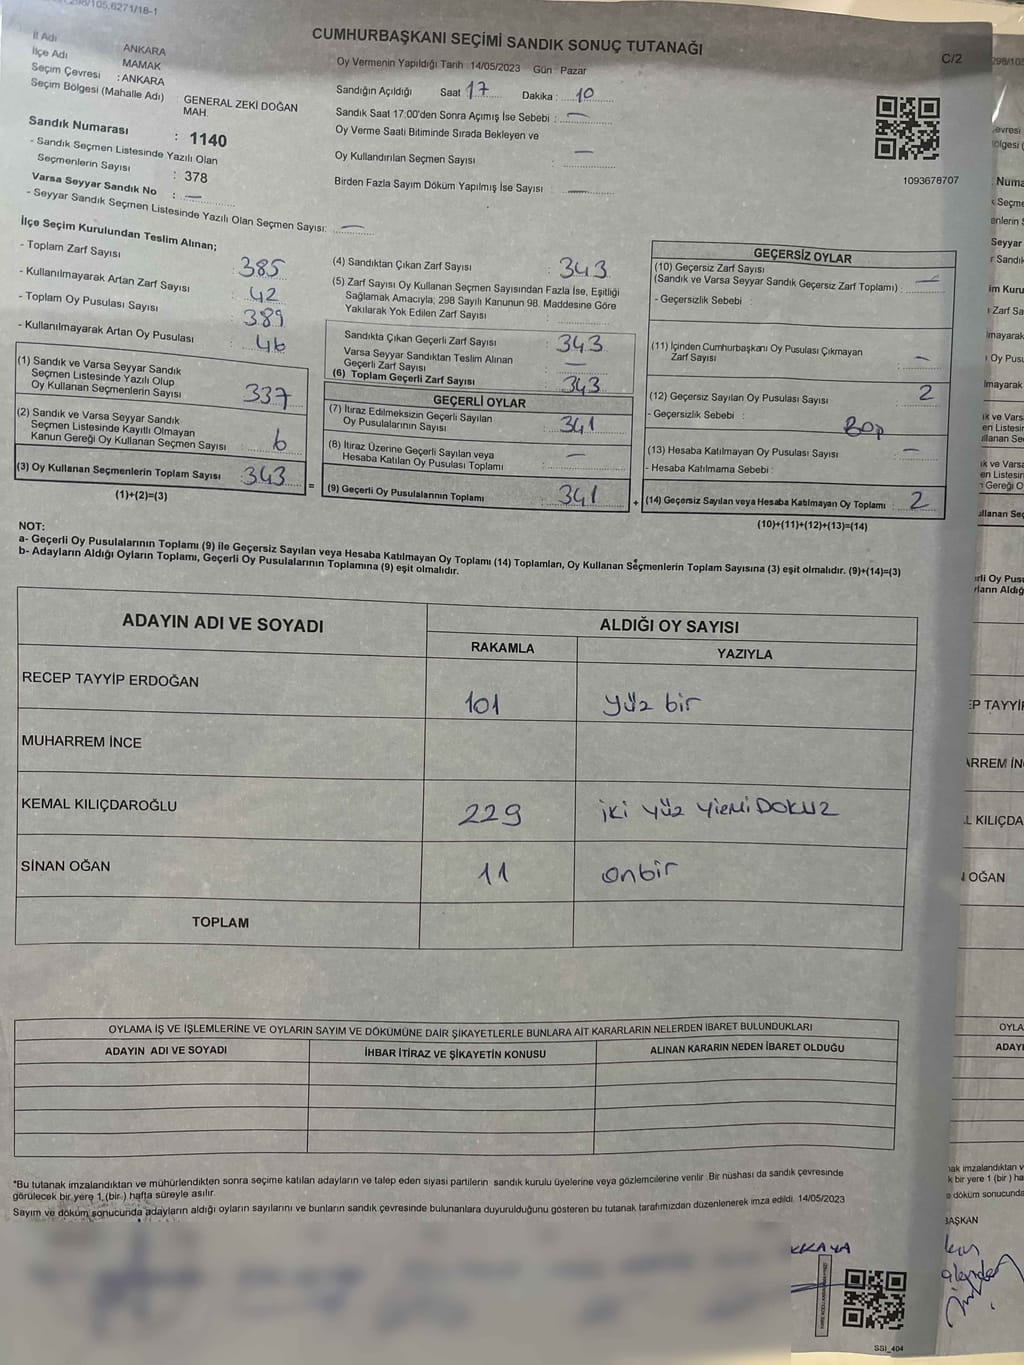 298/105,6271/18-1
CUMHURBAŞKANI SEÇİMİ SANDIK SONUÇ TUTANAĞI
C/2
İl Adı ANKARA
İlçe Adı MAMAK
Seçim Çevresi : ANKARA
Seçim Bölgesi (Mahalle Adı) : GENERAL ZEKİ DOĞAN MAH.
Sandık Numarası : 1140
- Sandık Seçmen Listesinde Yazılı Olan
Seçmenlerin Sayısı : 378
Varsa Seyyar Sandık No : —
- Seyyar Sandık Seçmen Listesinde Yazılı Olan Seçmen Sayısı: —
Oy Vermenin Yapıldığı Tarih :14/05/2023 Gün : Pazar
Sandığın Açıldığı Saat 17 Dakika : 10
Sandık Saat 17:00'den Sonra Açımış İse Sebebi : —
Oy Verme Saati Bitiminde Sırada Bekleyen ve
Oy Kullandırılan Seçmen Sayısı : —
Birden Fazla Sayım Döküm Yapılmış İse Sayısı : —
1093678707
İlçe Seçim Kurulundan Teslim Alınan;
- Toplam Zarf Sayısı : 385
- Kullanılmayarak Artan Zarf Sayısı : 42
- Toplam Oy Pusulası Sayısı : 389
- Kullanılmayarak Artan Oy Pusulası : 46
(1) Sandık ve Varsa Seyyar Sandık
Seçmen Listesinde Yazılı Olup
Oy Kullanan Seçmenlerin Sayısı : 337
(2) Sandık ve Varsa Seyyar Sandık
Seçmen Listesinde Kayıtlı Olmayan
Kanun Gereği Oy Kullanan Seçmen Sayısı : 6
(3) Oy Kullanan Seçmenlerin Toplam Sayısı : 343 =
(1)+(2)=(3)
(4) Sandıktan Çıkan Zarf Sayısı : 343
(5) Zarf Sayısı Oy Kullanan Seçmen Sayısından Fazla İse, Eşitliği
Sağlamak Amacıyla; 298 Sayılı Kanunun 98. Maddesine Göre
Yakılarak Yok Edilen Zarf Sayısı :
Sandıkta Çıkan Geçerli Zarf Sayısı : 343
Varsa Seyyar Sandıktan Teslim Alınan
Geçerli Zarf Sayısı : —
(6) Toplam Geçerli Zarf Sayısı : 343
GEÇERLİ OYLAR
(7) İtiraz Edilmeksizin Geçerli Sayılan
Oy Pusulalarının Sayısı : 341
(8) İtiraz Üzerine Geçerli Sayılan veya
Hesaba Katılan Oy Pusulası Toplamı : —
(9) Geçerli Oy Pusulalarının Toplamı : 341 +
GEÇERSİZ OYLAR
(10) Geçersiz Zarf Sayısı
(Sandık ve Varsa Seyyar Sandık Geçersiz Zarf Toplamı) : —
- Geçersizlik Sebebi :
(11) İçinden Cumhurbaşkanı Oy Pusulası Çıkmayan
Zarf Sayısı : —
(12) Geçersiz Sayılan Oy Pusulası Sayısı : 2
- Geçersizlik Sebebi :
(13) Hesaba Katılmayan Oy Pusulası Sayısı : —
- Hesaba Katılmama Sebebi :
(14) Geçersiz Sayılan veya Hesaba Katılmayan Oy Toplamı : 2
(10)+(11)+(12)+(13)=(14)
NOT:
a- Geçerli Oy Pusulalarının Toplamı (9) ile Geçersiz Sayılan veya Hesaba Katılmayan Oy Toplamı (14) Toplamları, Oy Kullanan Seçmenlerin Toplam Sayısına (3) eşit olmalıdır. (9)+(14)=(3)
b- Adayların Aldığı Oyların Toplamı, Geçerli Oy Pusulalarının Toplamına (9) eşit olmalıdır.
ADAYIN ADI VE SOYADI ALDIĞI OY SAYISI
RAKAMLA YAZIYLA
RECEP TAYYİP ERDOĞAN 101 yüz bir
MUHARREM İNCE
KEMAL KILIÇDAROĞLU 229 iki yüz yirmi DOKUZ
SİNAN OĞAN 11 onbir
TOPLAM
OYLAMA İŞ VE İŞLEMLERİNE VE OYLARIN SAYIM VE DÖKÜMÜNE DAİR ŞİKAYETLERLE BUNLARA AİT KARARLARIN NELERDEN İBARET BULUNDUKLARI
ADAYIN ADI VE SOYADI İHBAR İTİRAZ VE ŞİKAYETİN KONUSU ALINAN KARARIN NEDEN İBARET OLDUĞU
*Bu tutanak imzalandıktan ve mühürlendikten sonra seçime katılan adayların ve talep eden siyasi partilerin sandık kurulu üyelerine veya gözlemcilerine verilir. Bir nüshası da sandık çevresinde
görülecek bir yere 1 (bir ) hafta süreyle asılır.
Sayım ve döküm sonucunda adayların aldığı oyların sayılarını ve bunların sandık çevresinde bulunanlara duyurulduğunu gösteren bu tutanak tarafımızdan düzenlenerek imza edildi. 14/05/2023
KKAYA
SSI_404
BAŞKAN